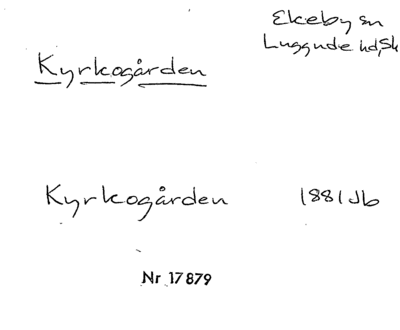 Ekeby sn
Luggude hd, Sk
Kyrkogården
Kyrkogården 1881 Jb
Nr 17879